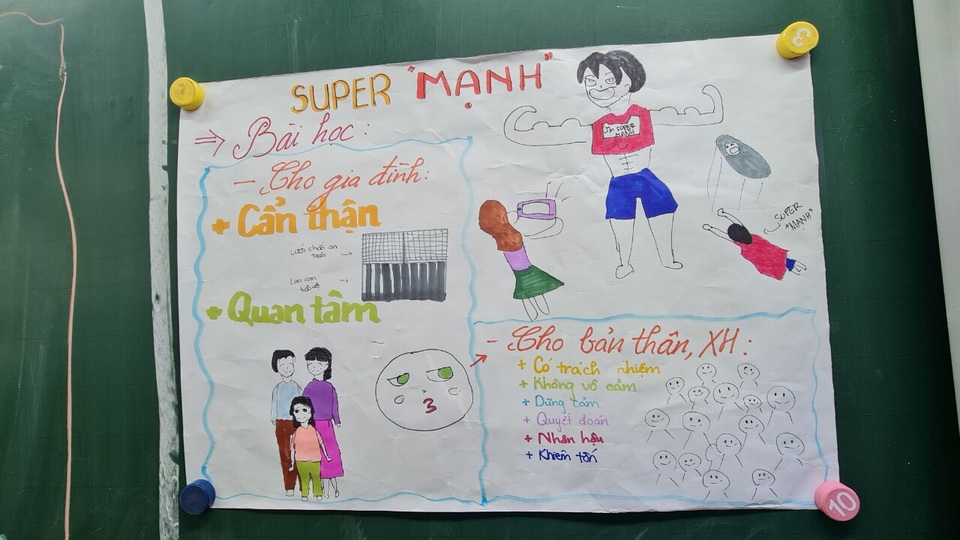 SUPER "MẠNH"
⇒ Bài học:
- Cho gia đình:
+ Cẩn thận
Lưới chắn an toàn →
Lan can bảo vệ →
+ Quan tâm
I'M SUPER MẠNH
SUPER "MẠNH"
- Cho bản thân, XH:
+ Có trách nhiệm
+ Không vô cảm
+ Dũng cảm
+ Quyết đoán
+ Nhân hậu
+ Khiêm tốn
3
10